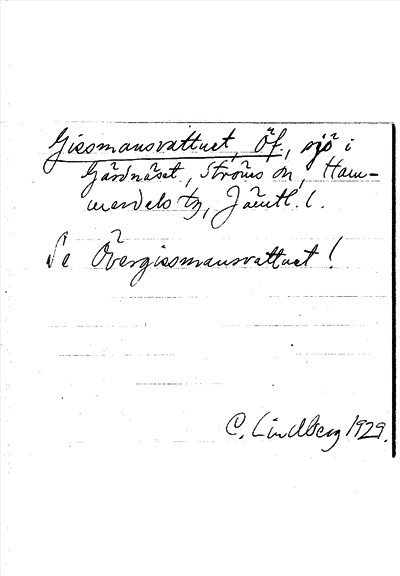 Gissmansvattnet, Öf., sjö i
Gärdnäset, Ströms sn, Ham-
merdals tg, Jämtl. l.
Se Övergissmansvattnet!
C. Lindberg 1929.